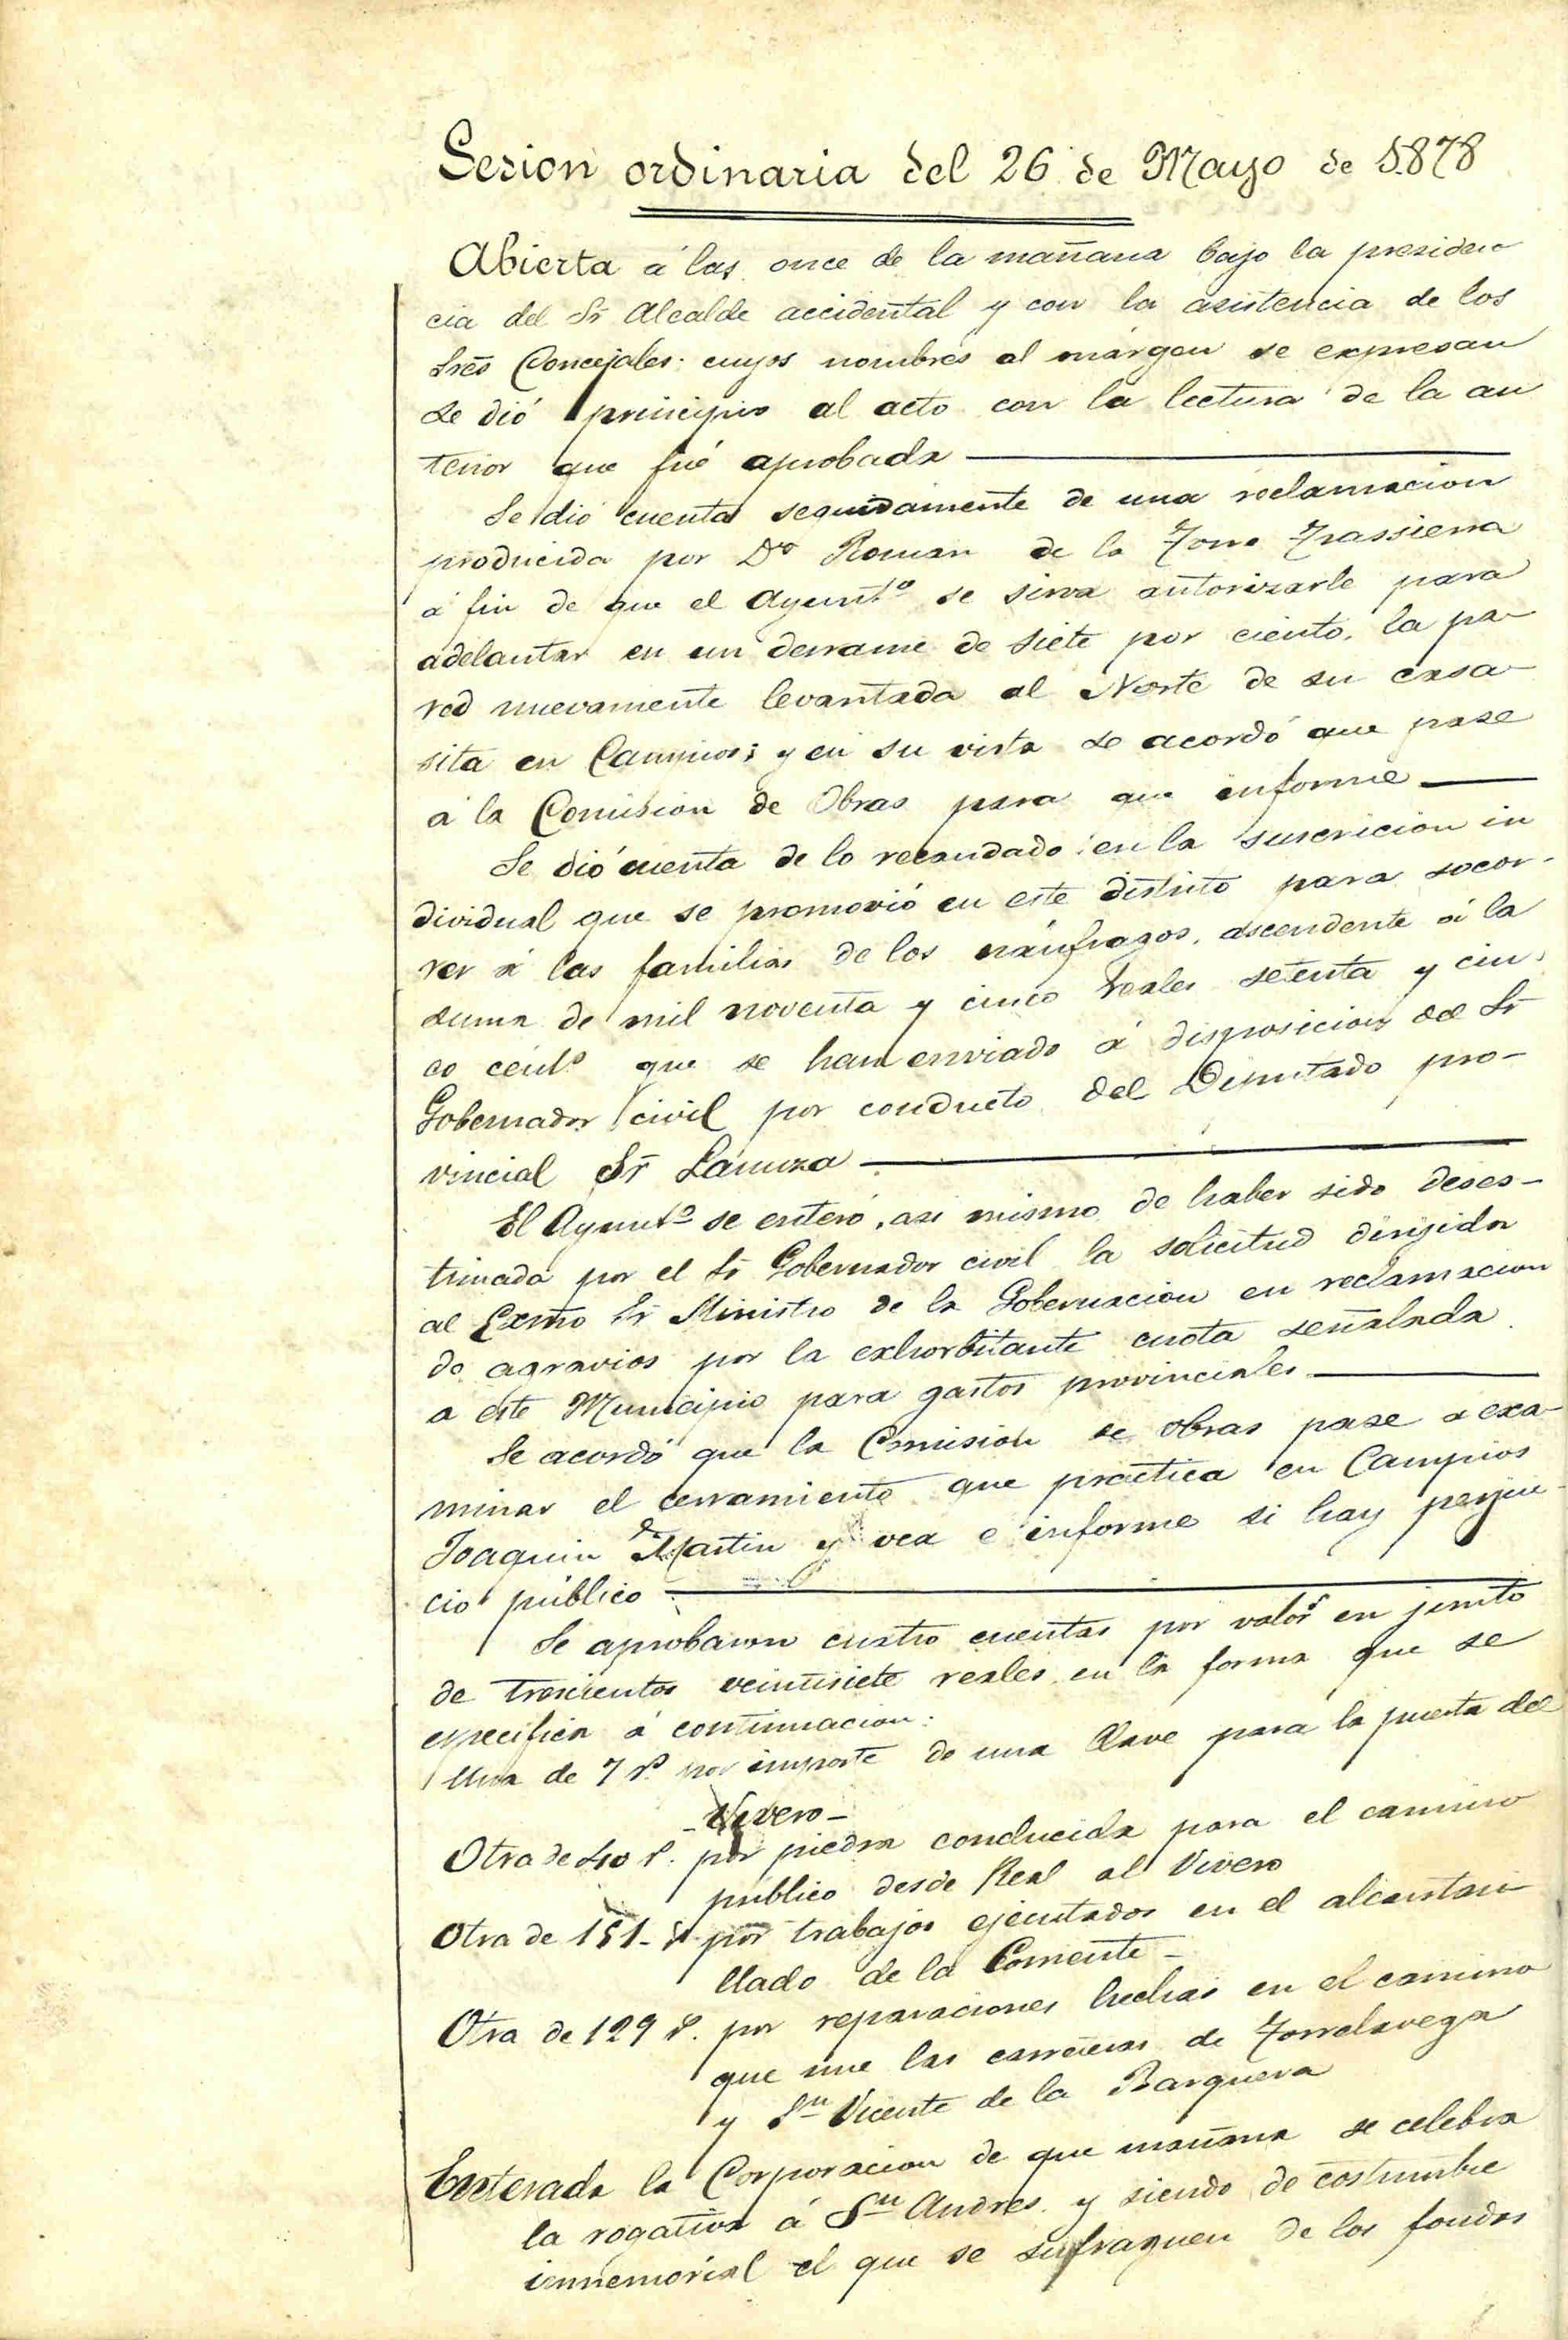 Sesion ordinaria del 26 de Mayo de 1878
Abierta á las once de la mañana bajo la presiden
cia del Sr Alcalde accidental y con la asistencia de los
Sres Concejales cuyos nombres al márgen se expresan
se dió principio al acto con la lectura de la an
terior que fué aprobada
Se dió cuenta seguidamente de una reclamacion
producida por Dn Roman de la Torre Trassierra
á fin de que el Ayuntº se sirva autorizarle para
adelantar en un derrame de siete por ciento, la pa-
red nuevamente levantada al Norte de su casa
sita en Campios; y en su vista se acordó que pase
á la Comision de Obras para que informe
Se dió cuenta de lo recaudado en la suscricion in
dividual que se promovió en este distrito para socor-
rer á las familias de los náufragos, ascendente á la
suma de mil noventa y cinco reales setenta y cin-
co céntº que se han enviado á disposicion del Sr
Gobernador civil por conducto del Diputado pro-
vincial Sr Lanuza
El Ayuntº se enteró, asi mismo de haber sido deses-
timada por el Sr Gobernador civil la solicitud dirijida
al Exmo Sr Ministro de la Gobernacion en reclamacion
de agravios por la exhorbitante cuota señalada
a este Municipio para gastos provinciales
Se acordó que la Comision de obras pase a exa-
minar el cerramiento que practica en Campios
Joaquin Martin y vea e informe si hay perjui-
cio público
Se aprobaron cuatro cuentas por valor en junto
de trescientos veintisiete reales en la forma que se
especifica á continuacion:
Una de 7 rs. por importe de una llave para la puerta del
Vivero-
Otra de 40 rs. por piedra conducida para el camino
público desde Real al Vivero
Otra de 151- rs. por trabajos ejecutados en el alcantari-
llado de la Corriente-
Otra de 129 rs. por reparaciones hechas en el camino
que une las carreteras de Torrelavega
y Sn Vicente de la Barquera
Enterada la Corporacion de que mañana se celebra
la rogativa á Sn Andres y siendo de costumbre
inmemorial el que se sufraguen de los fondos